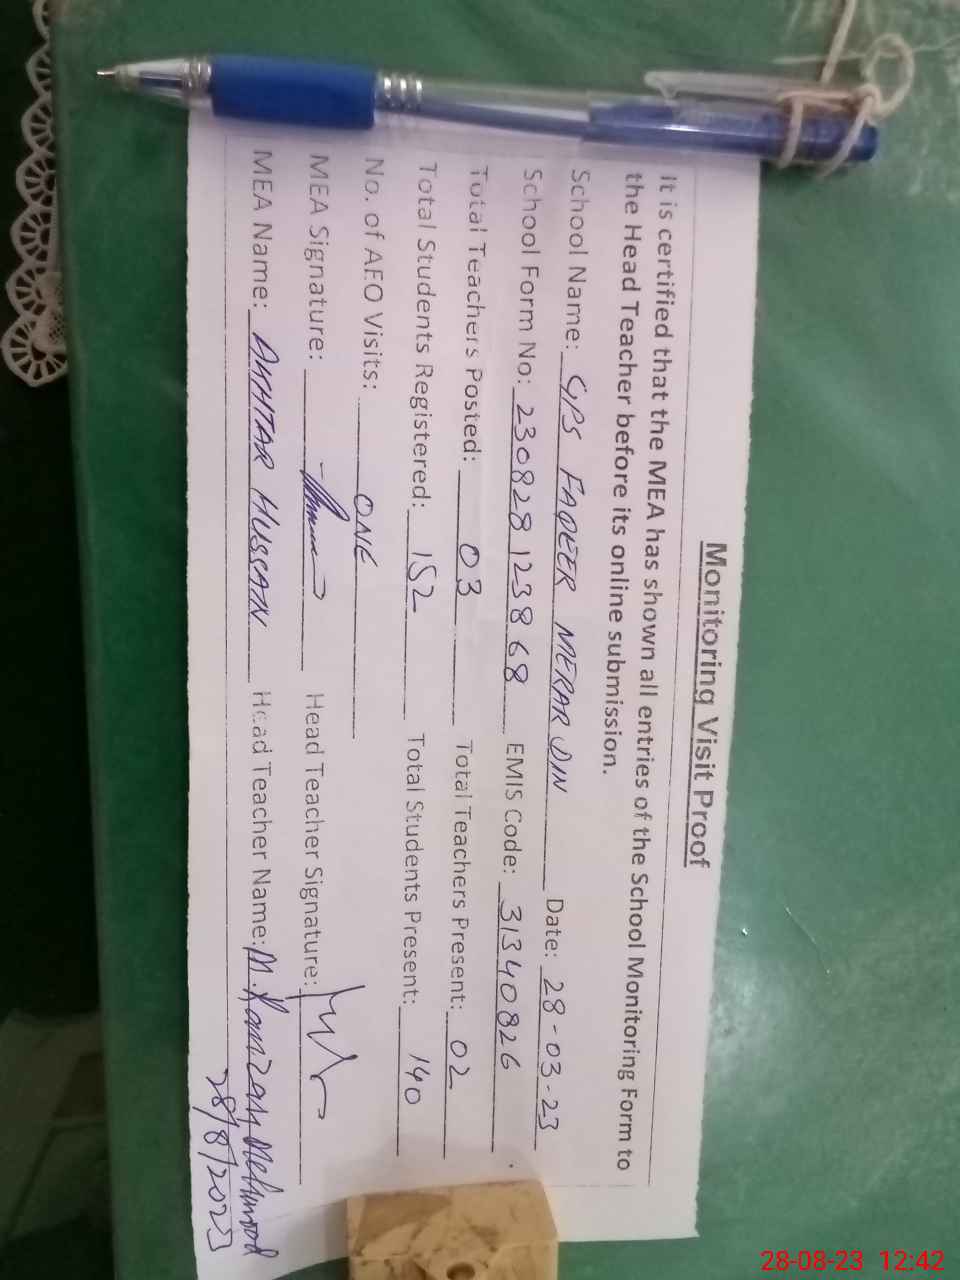 Monitoring Visit Proof
It is certified that the MEA has shown all entries of the School Monitoring Form to
the Head Teacher before its online submission.
School Name: GPS FAQEER MERAR DIN Date: 28-03-23
School Form No: 230828123868 EMIS Code: 31340826
Total Teachers Posted: 03 Total Teachers Present: 02
Total Students Registered: 152 Total Students Present: 140
No. of AEO Visits: ONE
MEA Signature: Head Teacher Signature:
MEA Name: AKHTAR HUSSAIN Head Teacher Name: M. Ramzan Mehmood
28/8/2023
28-08-23 12:42